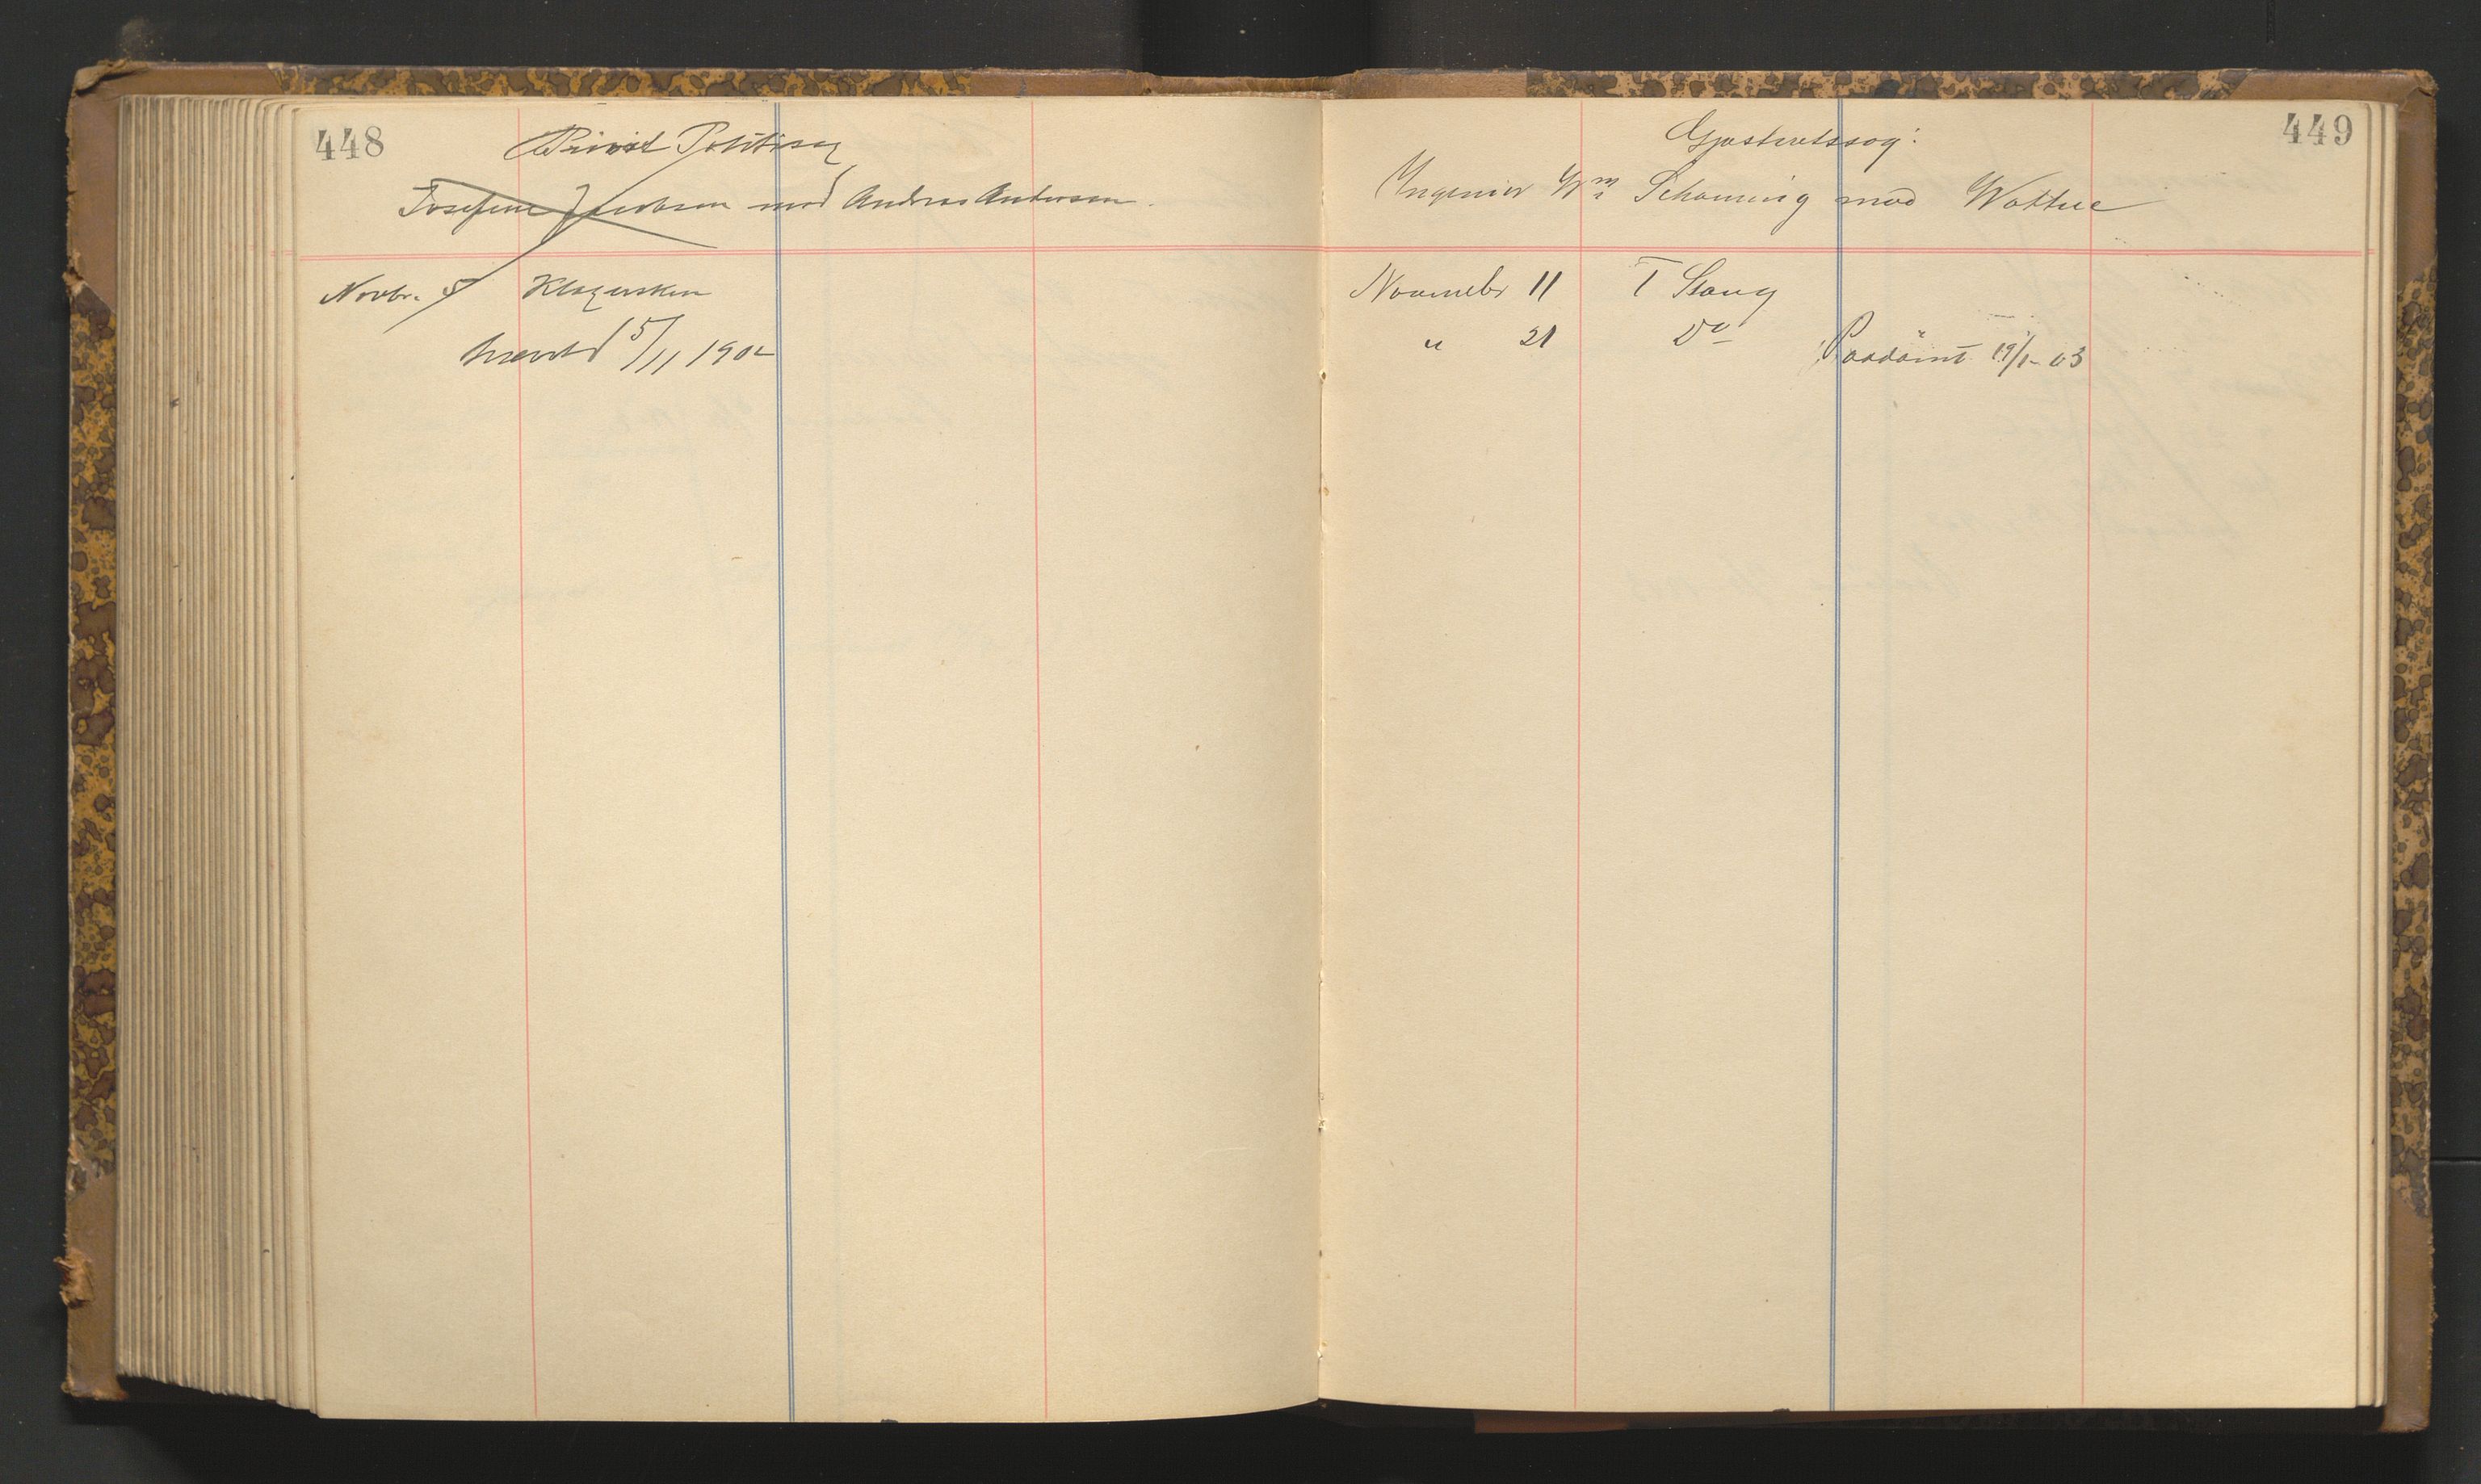 448
Privat Politisag
Josefine Jacobsen mod Andreas Andersen.
Novbr. 5 Klagersken
hævet 15/11 1902
449
Gjæsteretssag:
Ingeniør Wm Schæning mod Wattne
November 11 T Stang
" 21 Do
Paadømt 19/1-03